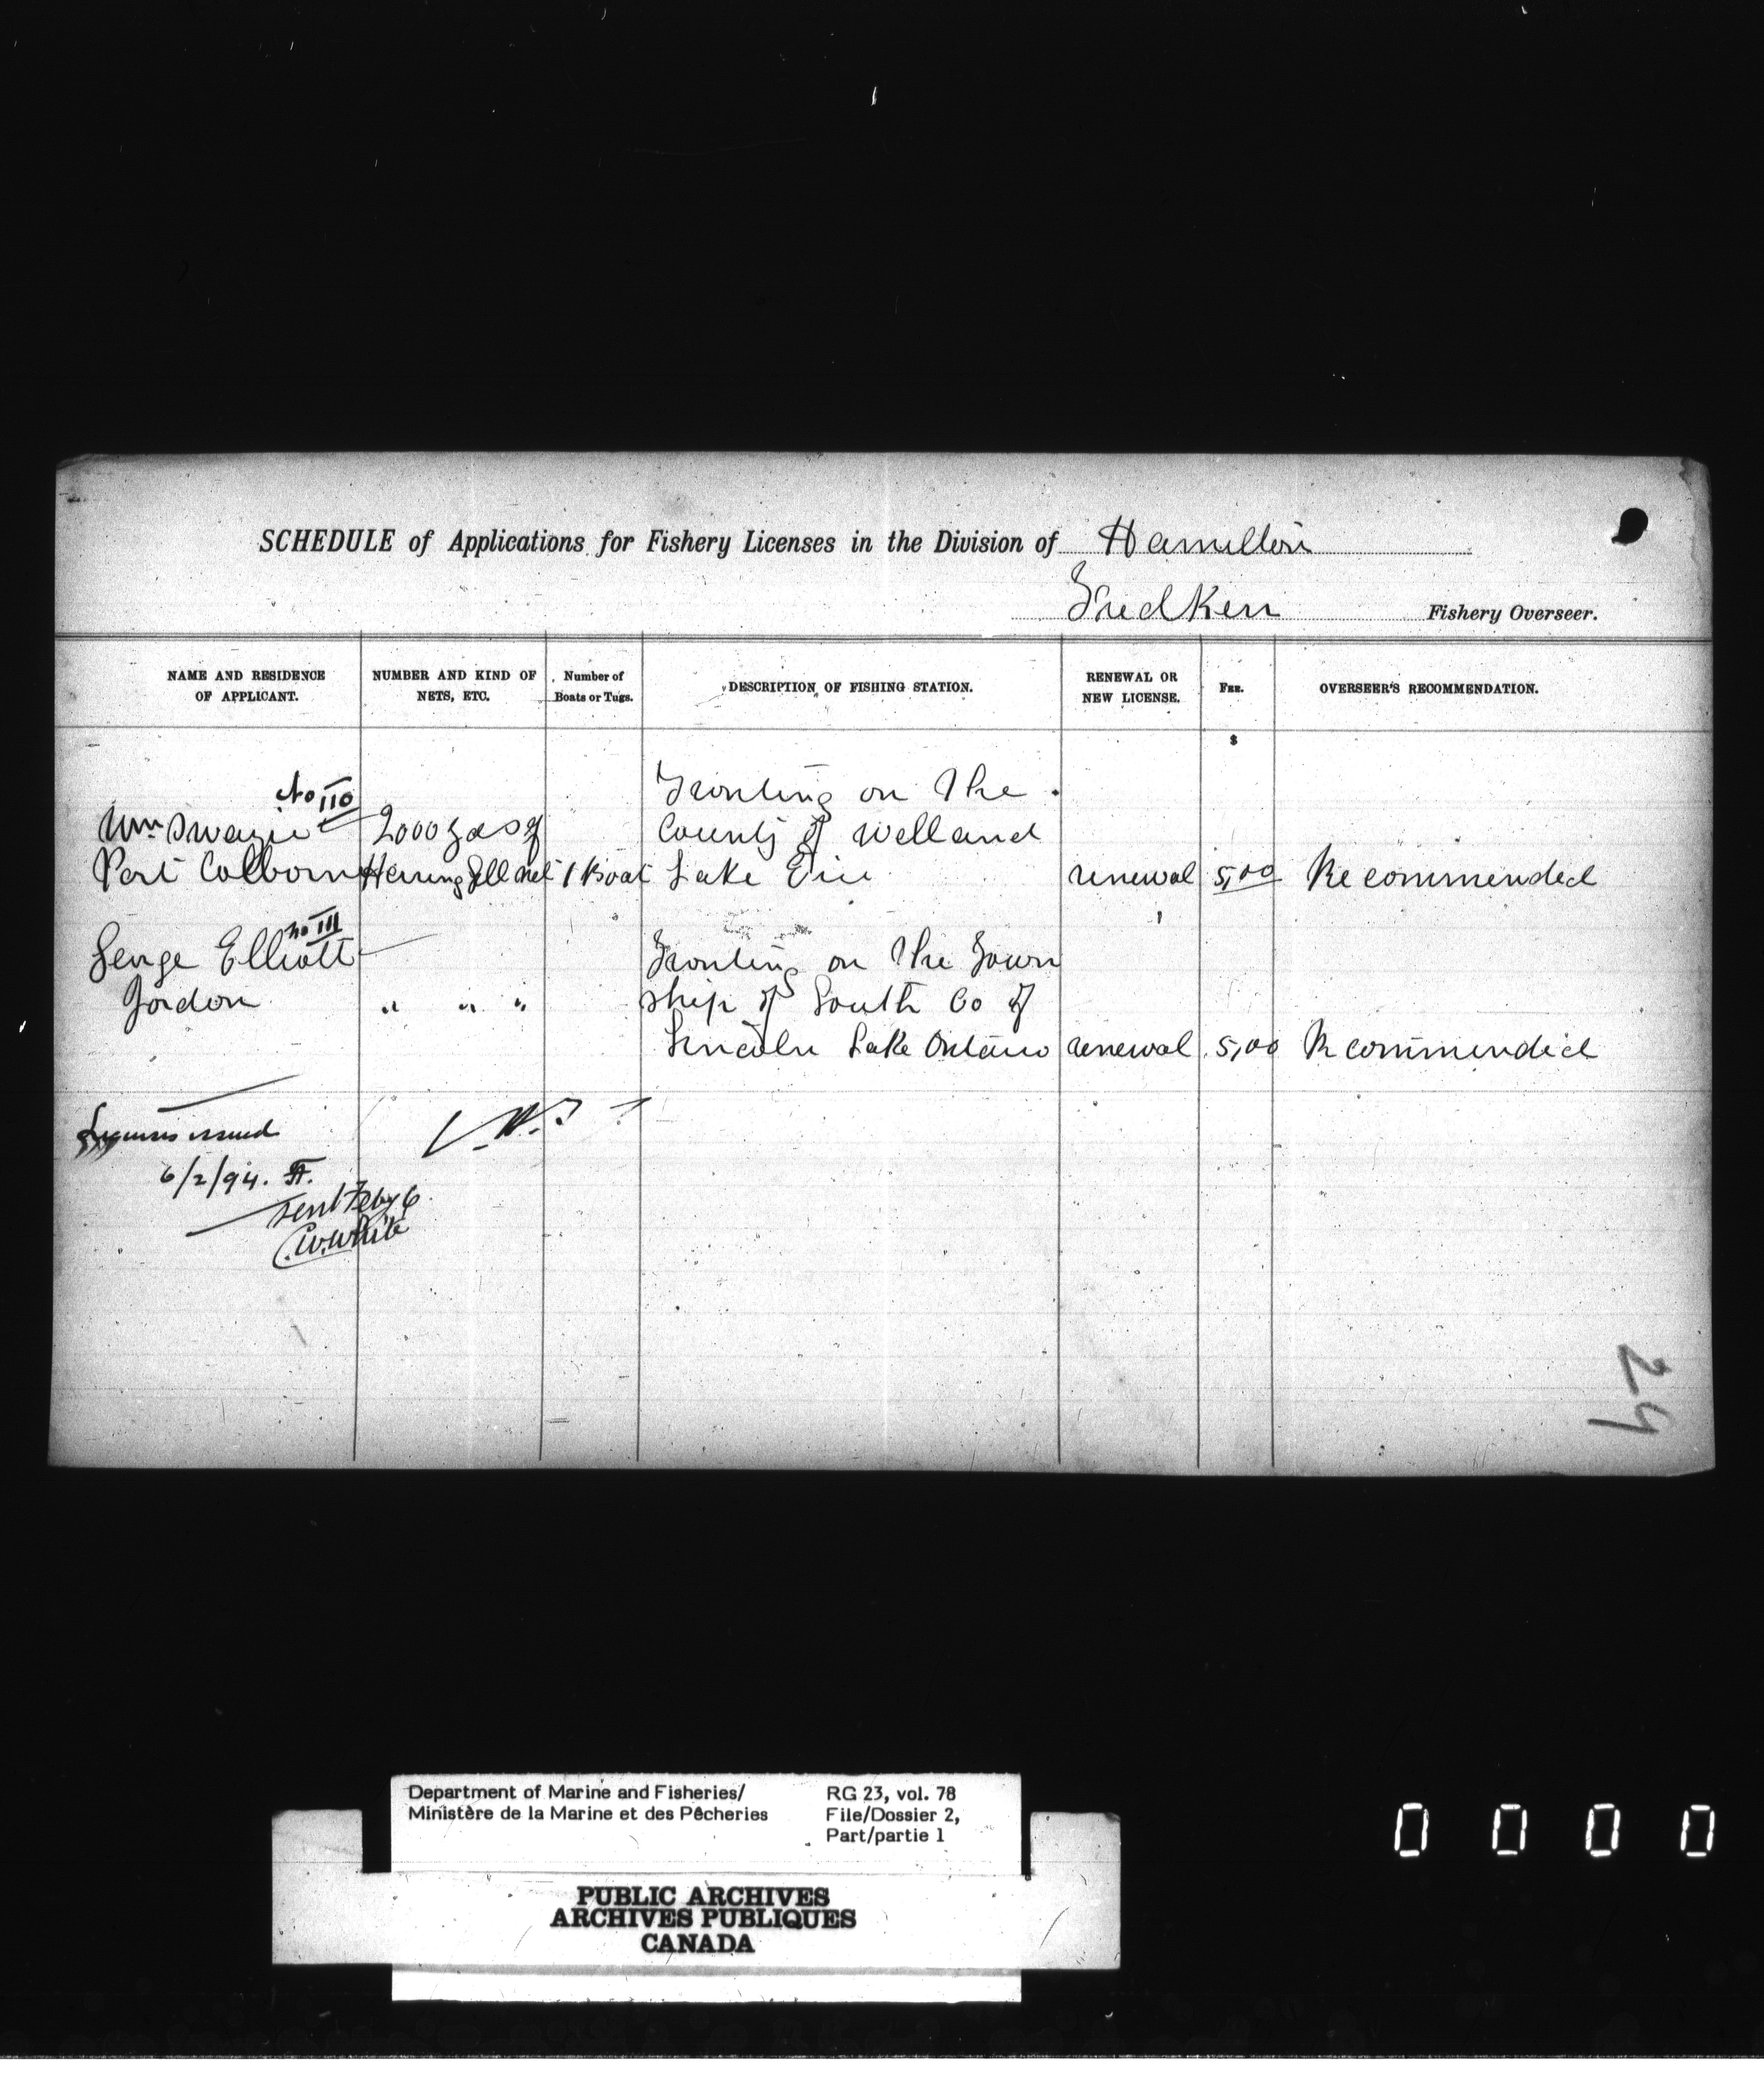 SCHEDULE of Applications for Fishery Licenses in the Division of Hamilton
Fred Kerr Fishery Overseer.
NAME AND RESIDENCE OF APPLICANT.
NUMBER AND KIND OF NETS, ETC.
Number of Boats or Tugs.
DESCRIPTION OF FISHING STATION.
RENEWAL OR NEW LICENSE.
FEE.
OVERSEER'S RECOMMENDATION.
$
No 110 Fronting on the
Wm Swazie 2000 yds of County of Welland
Port Colborn Herring Gill net 1 Boat Lake Erie renewal 5,00 Recommended
No 111
George Elliott Fronting on the Town
Jordon " " " ship of South Co of
Lincoln Lake Ontario renewal 5,00 Recommended
Licenses issued
6/2/94.
Sent Feby 6
C.W. White
29
Department of Marine and Fisheries/ RG 23, vol. 78
Ministère de la Marine et des Pêcheries File/Dossier 2,
Part/partie 1
PUBLIC ARCHIVES
ARCHIVES PUBLIQUES
CANADA
0 0 0 0